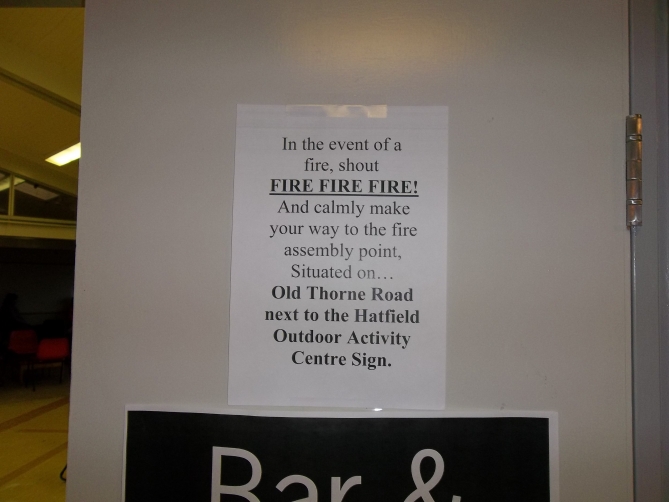 In the event of a
fire, shout
FIRE FIRE FIRE!
And calmly make
your way to the fire
assembly point,
Situated on...
Old Thorne Road
next to the Hatfield
Outdoor Activity
Centre Sign.
Bar &